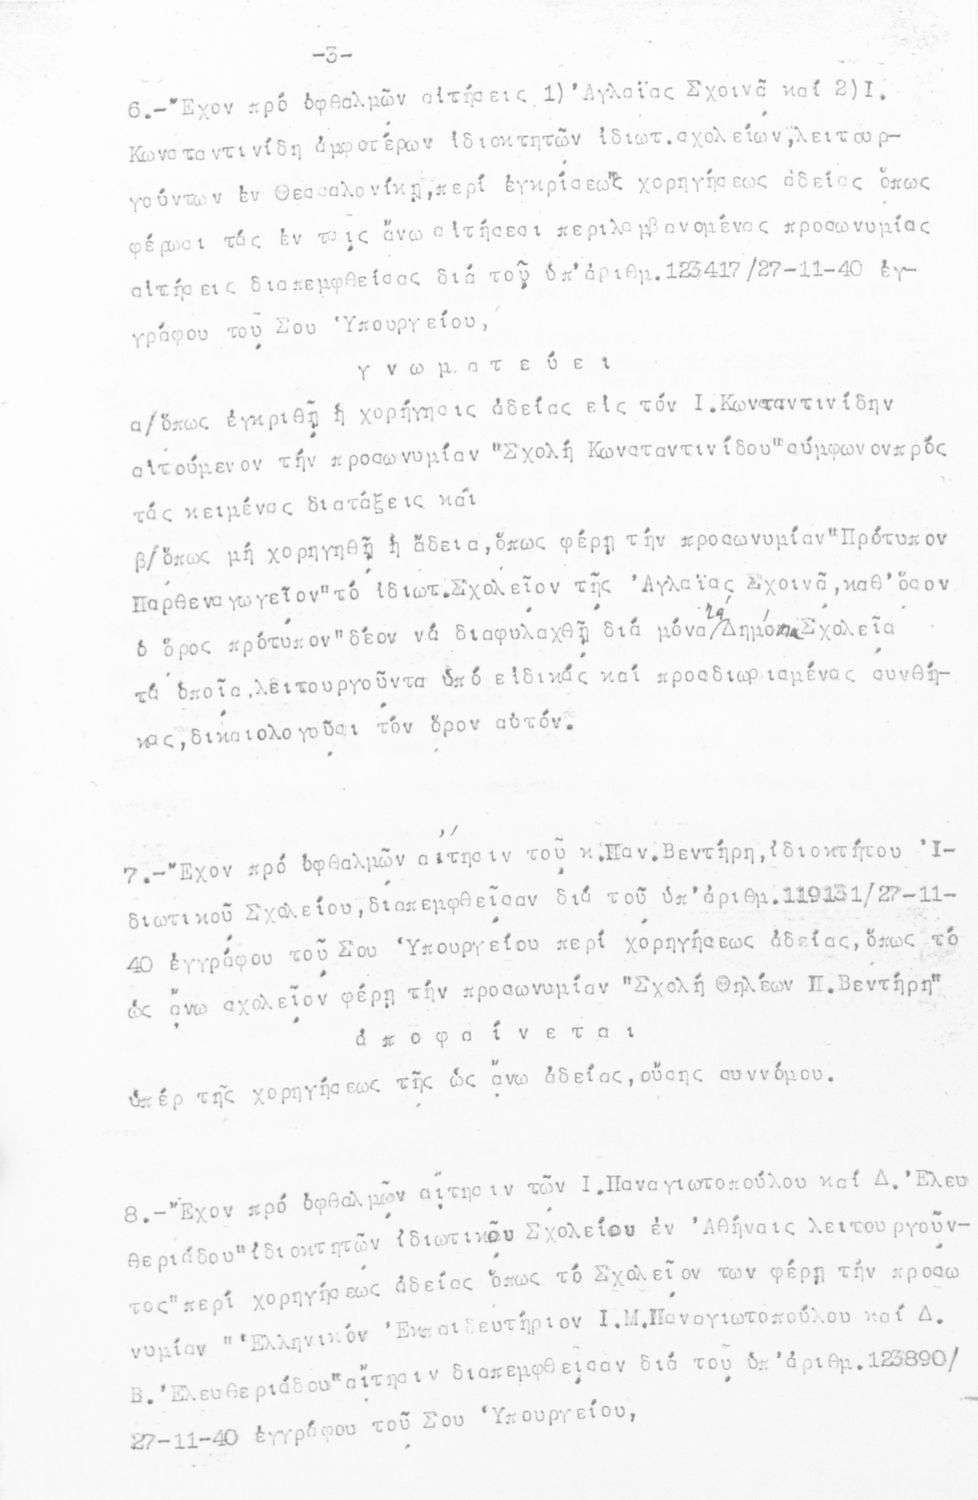 -3-
6.-Ἔχον πρό ὀφθαλμῶν αἰτήσεις 1)'Αγλαΐας Σχοινᾶ καί 2)Ι.
Κωνσταντινίδη ἀμφοτέρων ἰδιοκτητῶν ἰδιωτ.σχολείων,λειτουρ-
γούντων ἐν Θεσσαλονίκῃ,περί ἐγκρίσεως χορηγήσεως ἀδείας ὅπως
φέρωσι τάς ἐν ταῖς ἄνω αἰτήσεσι περιλαμβανομένας προσωνυμίας
αἰτήσεις διαπεμφθείσας διά τοῦ ὑπ'ἀριθμ.123417/27-11-40 ἐγ-
γράφου τοῦ Σου Ὑπουργείου,
γ ν ω μ α τ ε ύ ε ι
α/ὅπως ἐγκριθῇ ἡ χορήγησις ἀδείας εἰς τόν Ι.Κωνσταντινίδην
αἰτούμενον τήν προσωνυμίαν "Σχολή Κωνσταντινίδου"σύμφωνονπρός
τάς κειμένας διατάξεις καί
β/ὅπως μή χορηγηθῇ ἡ ἄδεια,ὅπως φέρῃ τήν προσωνυμίαν"Πρότυπον
Παρθεναγωγεῖον"τό ἰδιωτ.Σχολεῖον τῆς 'Αγλαΐας Σχοινᾶ,καθ'ὅσον
ὁ ὅρος πρότυπον"δέον νά διαφυλαχθῇ διά μόνα τά Δημόσια Σχολεῖα
τά ὁποῖα,λειτουργοῦντα ὑπό εἰδικάς καί προσδιωρισμένας συνθή-
κας,δικαιολογοῦσι τόν ὅρον αὐτόν.
7.-Ἔχον πρό ὀφθαλμῶν αἴτησιν τοῦ κ.Παν.Βεντήρη,ἰδιοκτήτου Ἰ-
διωτικοῦ Σχολείου,διαπεμφθεῖσαν διά τοῦ ὑπ'ἀριθμ.119131/27-11-
40 ἐγγράφου τοῦ Σου Ὑπουργείου περί χορηγήσεως ἀδείας,ὅπως τό
ὡς ἄνω σχολεῖον φέρῃ τήν προσωνυμίαν "Σχολή Θηλέων Π.Βεντήρη"
ἀ π ο φ α ί ν ε τ α ι
ὑπέρ τῆς χορηγήσεως τῆς ὡς ἄνω ἀδείας,οὔσης συννόμου.
8.-Ἔχον πρό ὀφθαλμῶν αἴτησιν τῶν Ι.Παναγιωτοπούλου καί Δ.'Ελευ
θεριάδου"ἰδιοκτητῶν ἰδιωτικοῦ Σχολείου ἐν 'Αθήναις λειτουργοῦν-
τος"περί χορηγήσεως ἀδείας ὅπως τό Σχολεῖον των φέρῃ τήν προσω
νυμίαν "Ἑλληνικόν Ἐκπαιδευτήριον Ι.Μ.Παναγιωτοπούλου καί Δ.
Β.'Ελευθεριάδου"αἴτησιν διαπεμφθεῖσαν διά τοῦ ὑπ'ἀριθμ.123890/
27-11-40 ἐγγράφου τοῦ Σου Ὑπουργείου,